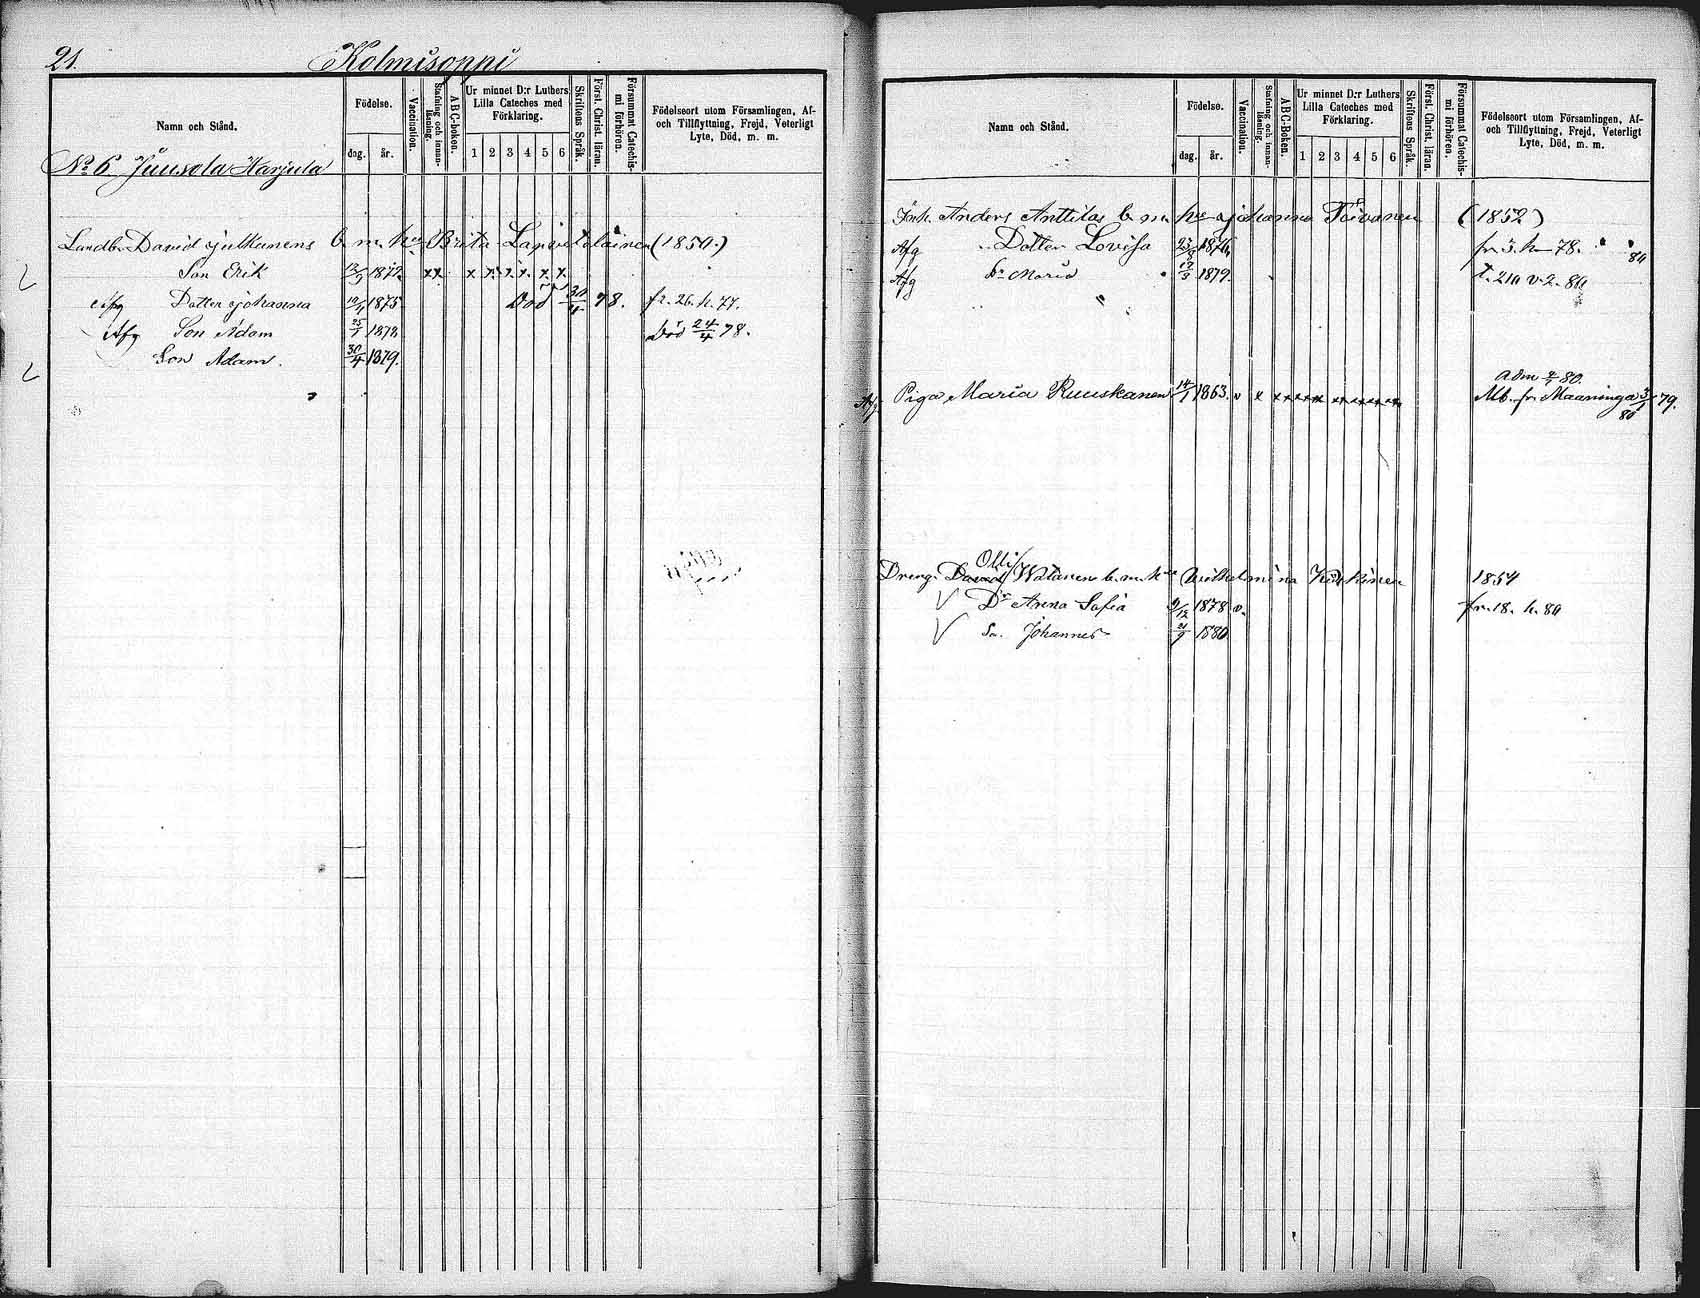 21.
Kolmisoppi
Namn och Stånd.
Födelse.
dag. år.
Vaccination.
Stafning och innanläsning.
A B C-boken.
Ur minnet D:r Luthers Lilla Cateches med Förklaring.
1 2 3 4 5 6
Skriftens Språk.
Först. Christ. läran.
Försummat Catechismi förhören.
Födelseort utom Församlingen, Af- och Tillflyttning, Frejd, Veterligt Lyte, Död, m. m.
No 6 Juusola Harjula
Landb. David Julkunens b. m. h. Brita Lapvetelainen (1850.)
Son Erik 1872 x x x x x x x x
Afg Dotter Johanna 1875 Död 30/4 78. fr. 26. h. 77.
Afg Son Adam 25/1 1878 Död 24/4 78.
Son Adam. 30/4 1879.
Namn och Stånd.
Födelse.
dag. år.
Vaccination.
Stafning och innanläsning.
A B C-Boken.
Ur minnet D:r Luthers Lilla Cateches med Förklaring.
1 2 3 4 5 6
Skriftens Språk.
Först. Christ. läran.
Försummat Catechismi förhören.
Födelseort utom Församlingen, Af- och Tillflyttning, Frejd, Veterligt Lyte, Död, m. m.
Inh. Anders Anttilas b. m. h. Johanna Toivanen (1852)
Afg Dotter Lovisa 23/8 1876 fr. 3. h. 78. 80
Afg Dr Maria 1879. t. 210 v. 2. 80
adm 80.
Afg Piga Maria Ruuskanen 14/1 1863. v x x x x x x x x x x x Mb. fr. Maaninga 79.
80
Olli
Dreng David Watanen b. m. h. Wilhelmina Kiiskinen 1854
Dr Anna Sofia 9/12 1878 v. fr. 18. h. 80
So. Johannes 21/9 1880